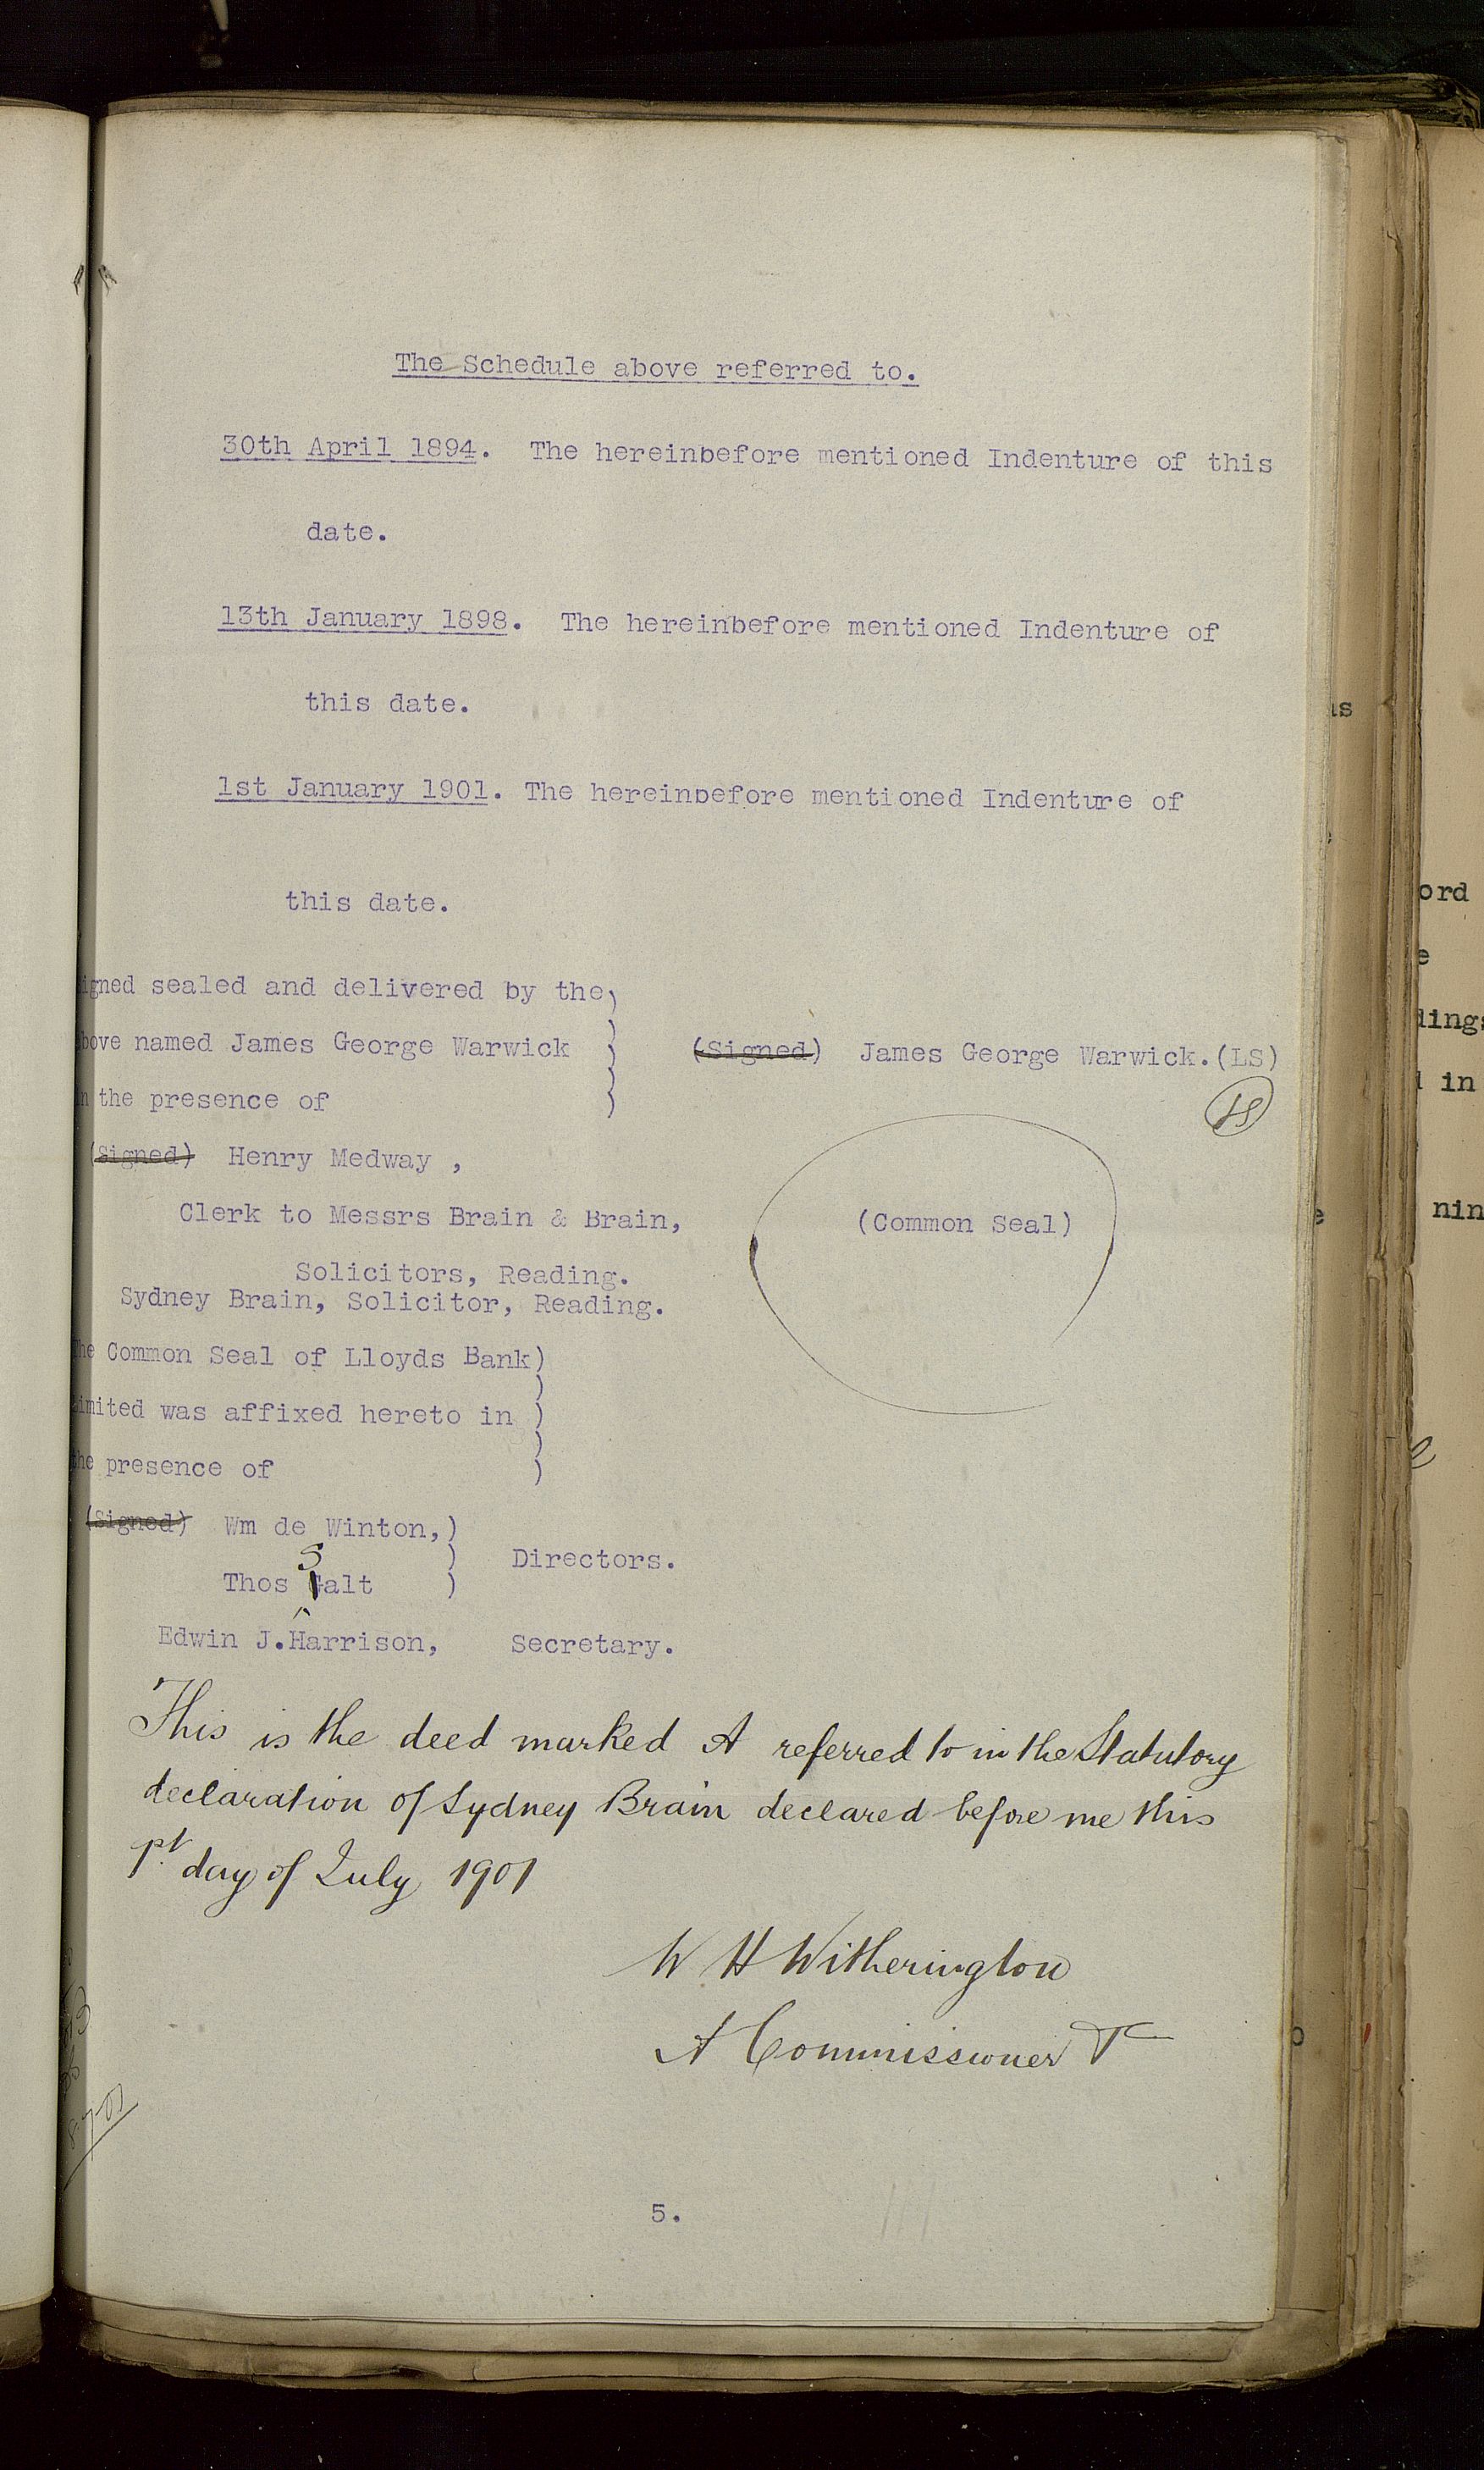 The Schedule above referred to.
30th April 1894. The hereinbefore mentioned Indenture of this
date.
13th January 1898. The hereinbefore mentioned Indenture of
this date.
1st January 1901. The hereinbefore mentioned Indenture of
this date.
igned sealed and delivered by the)
bove named James George Warwick ) (Signed) James George Warwick.(LS)
n the presence of )
LS
(Signed) Henry Medway ,
Clerk to Messrs Brain & Brain,
(Common Seal)
Solicitors, Reading.
Sydney Brain, Solicitor, Reading.
he Common Seal of Lloyds Bank)
imited was affixed hereto in )
he presence of )
(Signed) Wm de Winton,)
) Directors.
Thos Salt )
Edwin J.Harrison, Secretary.
This is the deed marked A referred to in the Statutory
declaration of Sydney Brain declared before me this
1st day of July 1901
W H Witherington
A Commissioner &c
5.
is
ord
e
dings
in
nin
e